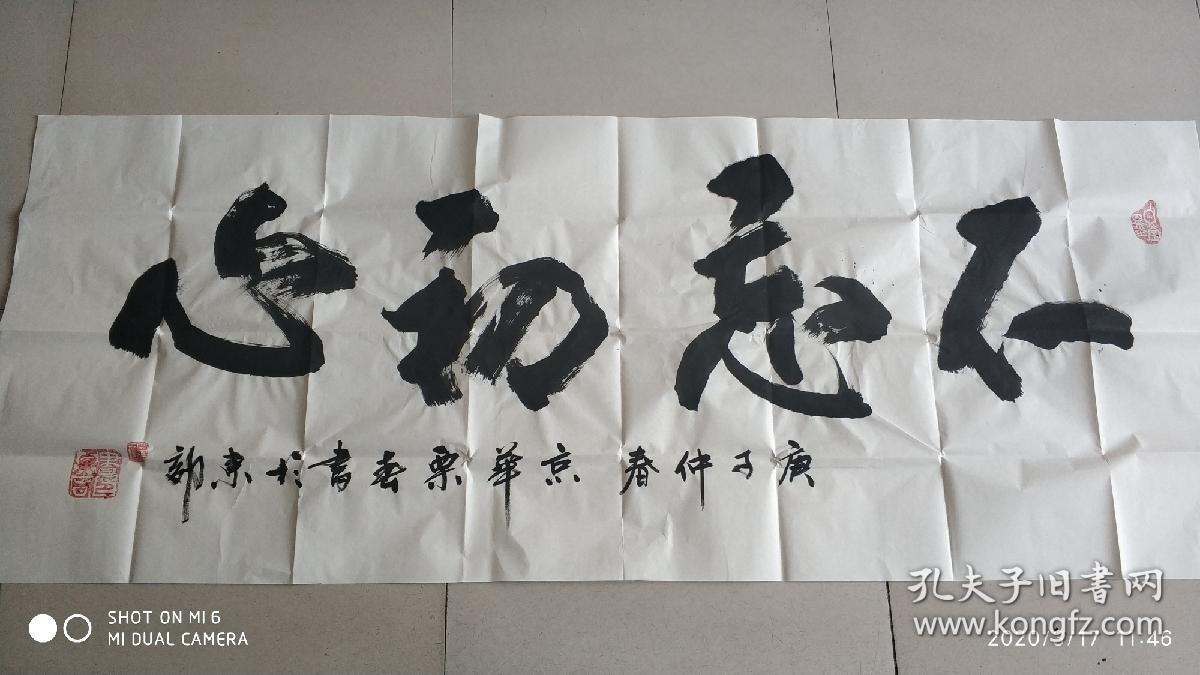 不忘初心
庚子仲春 京华栗春書於東部
孔夫子旧书网
www.kongfz.com
SHOT ON MI 6
MI DUAL CAMERA
2020/3/17 11:46